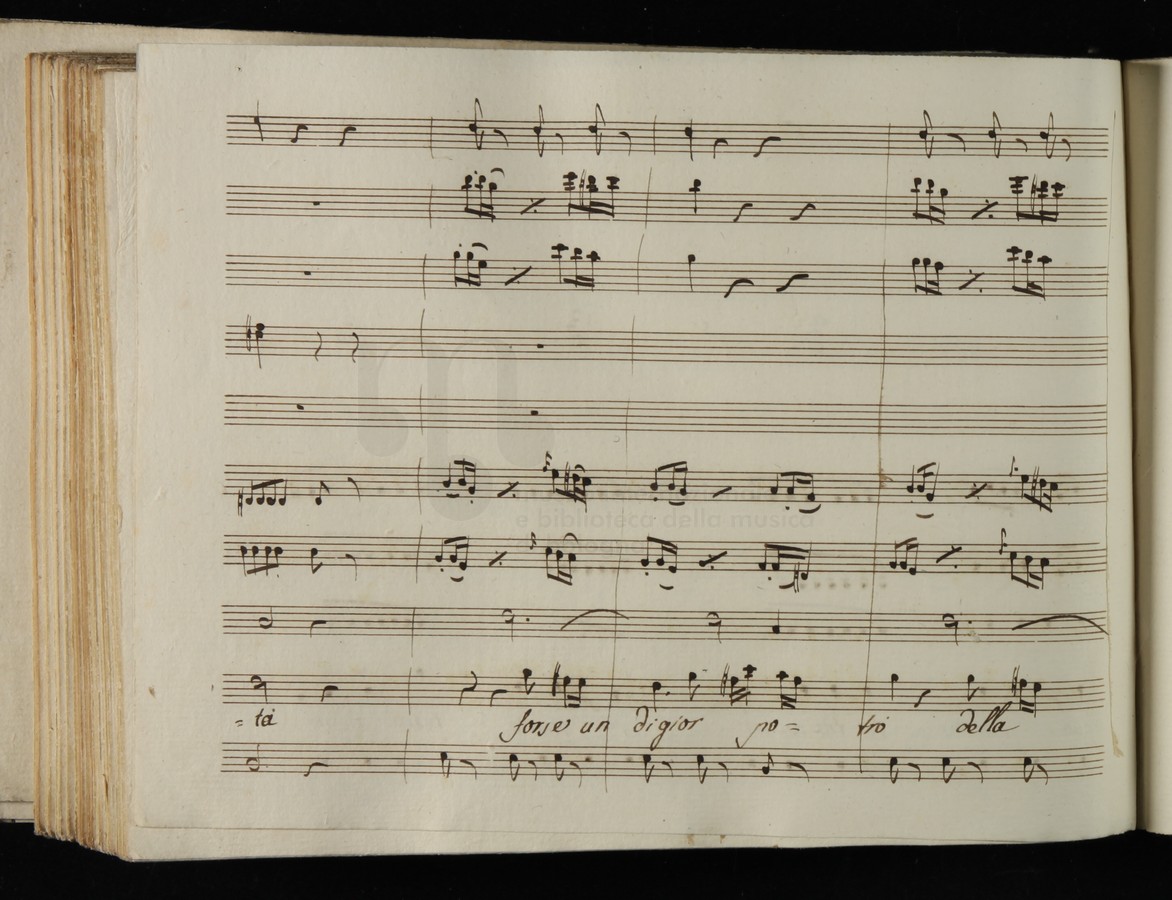 = tà forse un di gior po = trò della
e biblioteca della musica